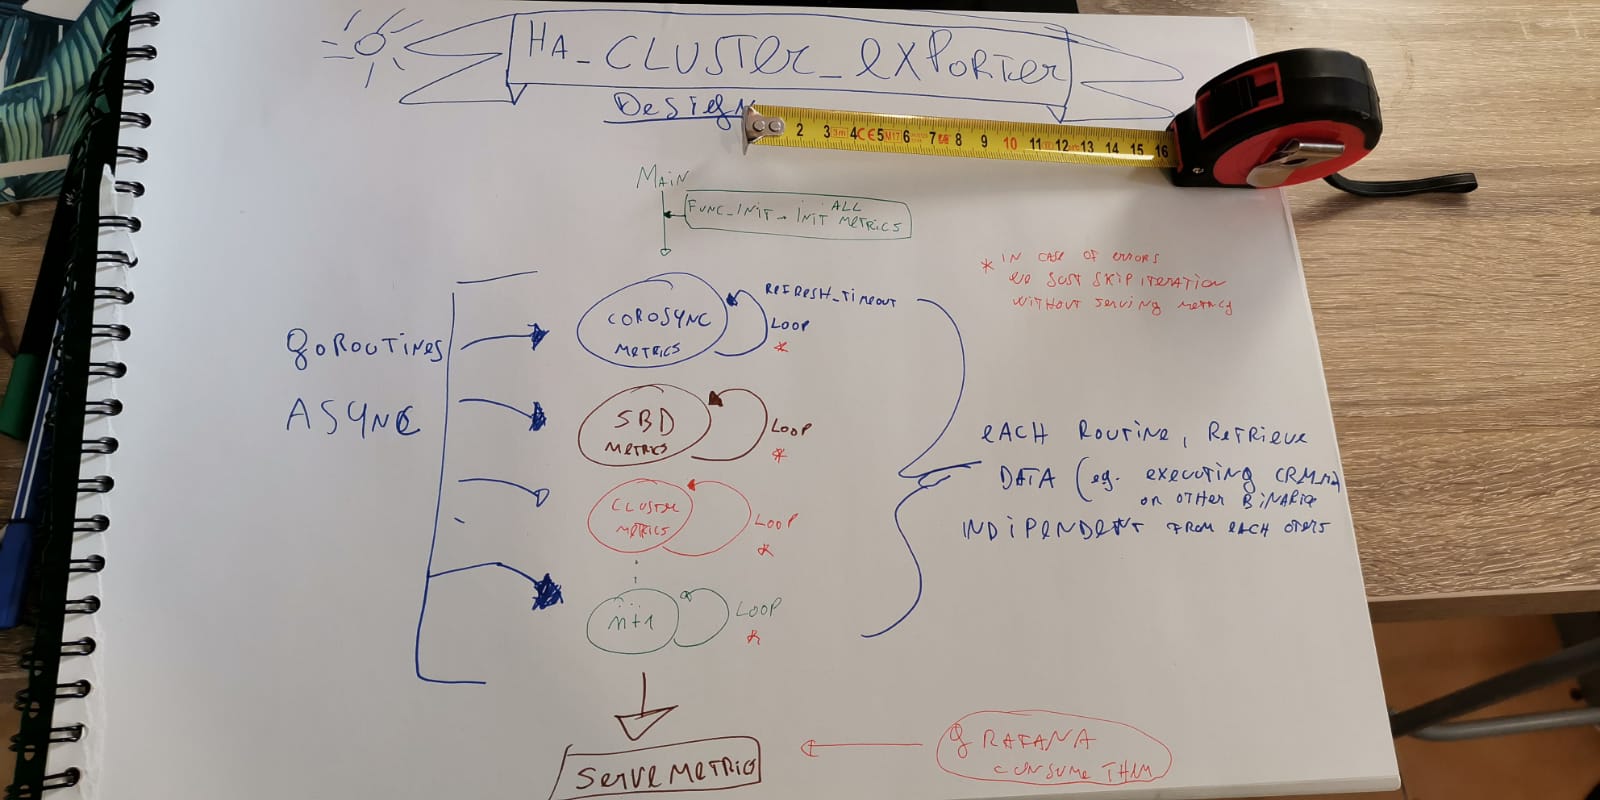 HA_CLUSTER_EXPORTER
DESIGN
2 3 3m 4 CE 5 M17 6 7 8 9 10 11 12 13 14 15 16
MAIN
FUNC_INIT → INIT ALL METRICS
* IN CASE OF ERRORS
WE JUST SKIP ITERATION
WITHOUT SERVING METRICS
GOROUTINES
ASYNC
COROSYNC
METRICS
REFRESH_TIMEOUT
LOOP
*
SBD
METRICS
LOOP
*
CLUSTER
METRICS
LOOP
*
n+1
LOOP
*
EACH ROUTINE, RETRIEVE
DATA (eg. EXECUTING
OR OTHER
INDIPENDENT FROM EACH OTERS
SERVE METRICS
GRAFANA
CONSUME THM